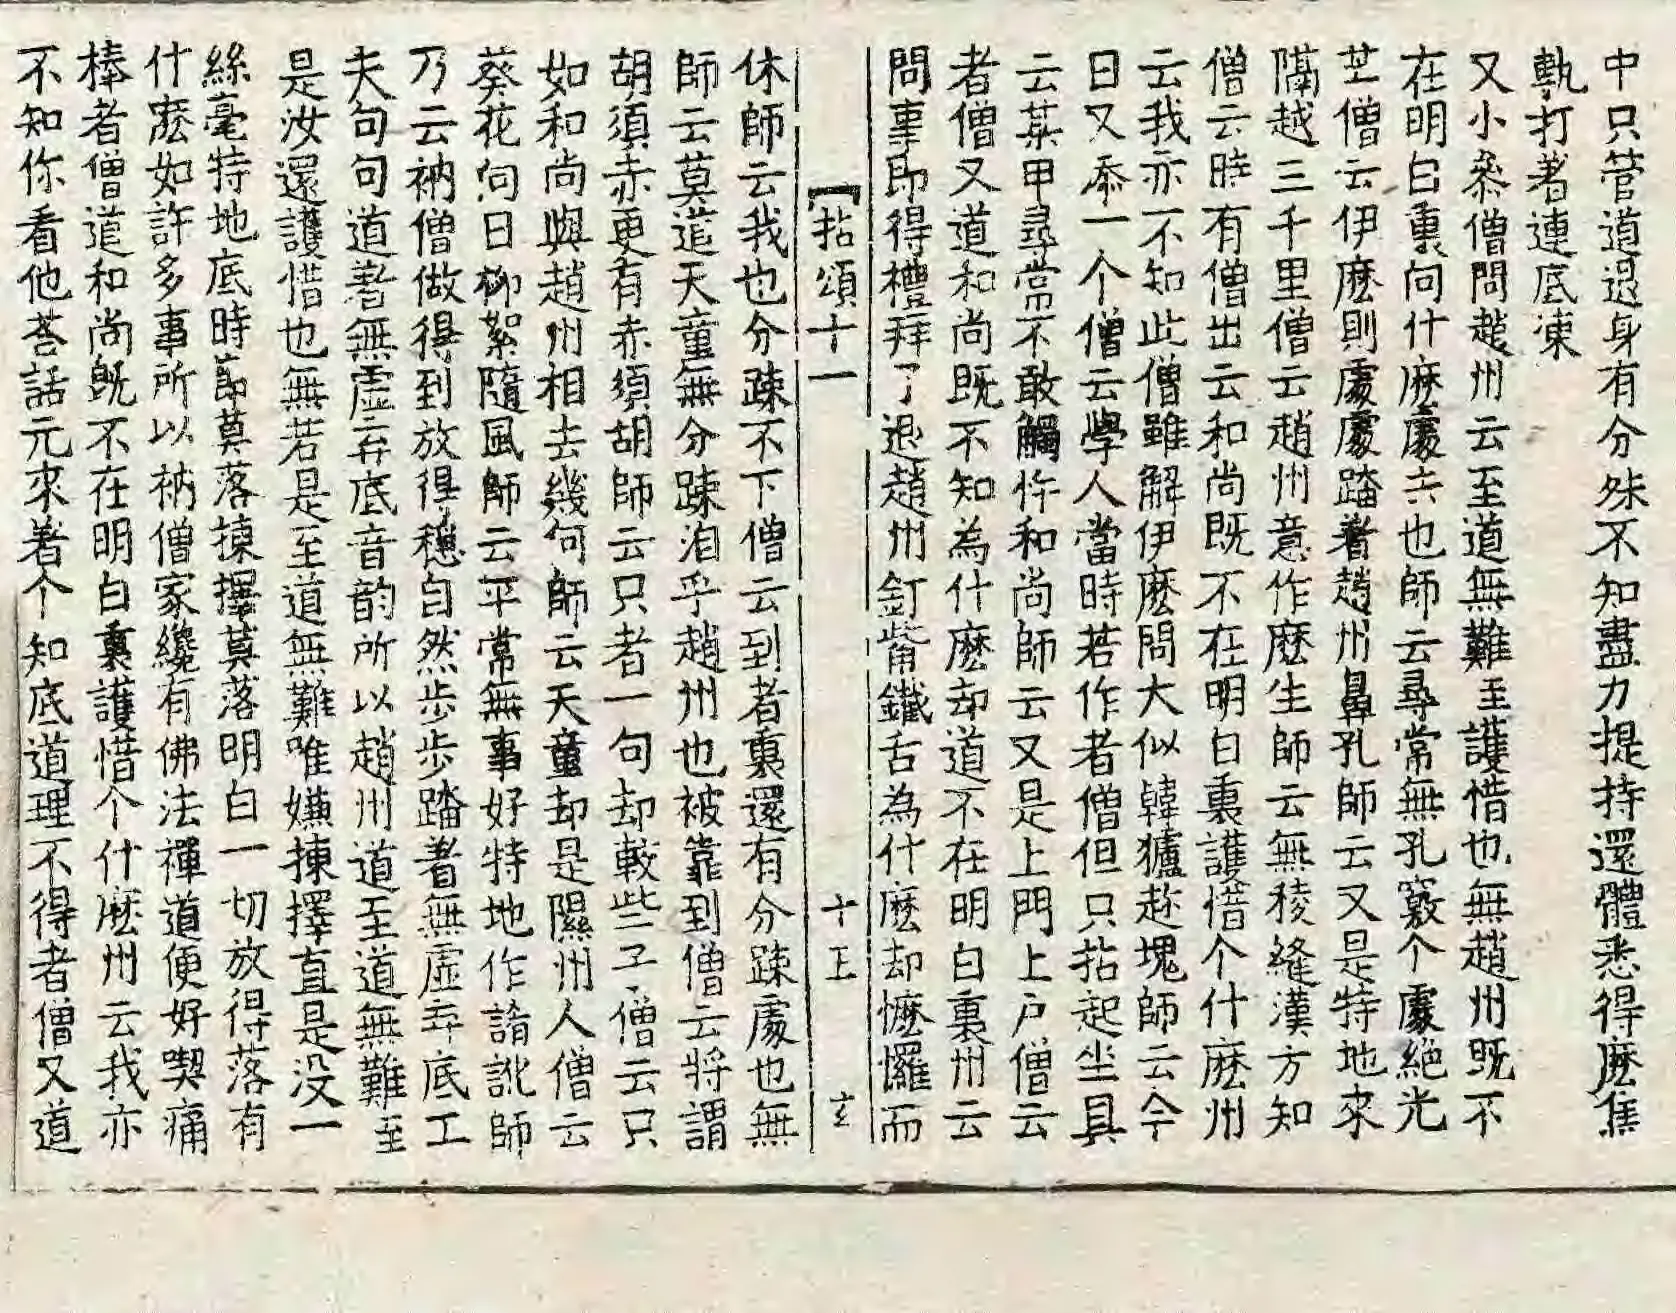 中只管道退身有分殊不知盡力提持還體悉得麽焦
執打著連底凍
又小叅僧問趙州云至道無難至護惜也無趙州旣不
在明白裏向什麽處去也師云尋常無孔竅个處絕光
芒僧云伊麽則處處踏着趙州鼻孔師云又是特地來
隔越三千里僧云趙州意作麽生師云無稜縫漢方知
僧云時有僧出云和尚旣不在明白裏護惜个什麽州
云我亦不知此僧雖解伊麽問大似韓獹趂塊師云今
日又添一个僧云學人當時若作者僧但只拈起坐具
云某甲尋常不敢觸忤和尚師云又是上門上户僧云
者僧又道和尚旣不知為什麽却道不在明白裏州云
問事即得禮拜了退趙州釘觜鐵舌為什麽却㦬㦬而
【拈頌十一 十五 玄
休師云我也分踈不下僧云到者裏還有分踈處也無
師云莫道天童無分踈洎乎趙州也被靠到僧云將謂
胡須赤更有赤須胡師云只者一句却較些子僧云只
如和尚與趙州相去幾何師云天童却是隰州人僧云
葵花向日柳絮隨風師云平常無事好特地作誵訛師
乃云衲僧做得到放得穩自然步步踏着無虛弃底工
夫句句道著無虛弃底音韵所以趙州道至道無難至
是汝還護惜也無若是至道無難唯嫌揀擇直是没一
絲毫特地底時節莫落揀擇莫落明白一切放得落有
什麽如許多事所以衲僧家纔有佛法禪道便好喫痛
棒者僧道和尚旣不在明白裏護惜个什麽州云我亦
不知你看他荅話元來著个知底道理不得者僧又道